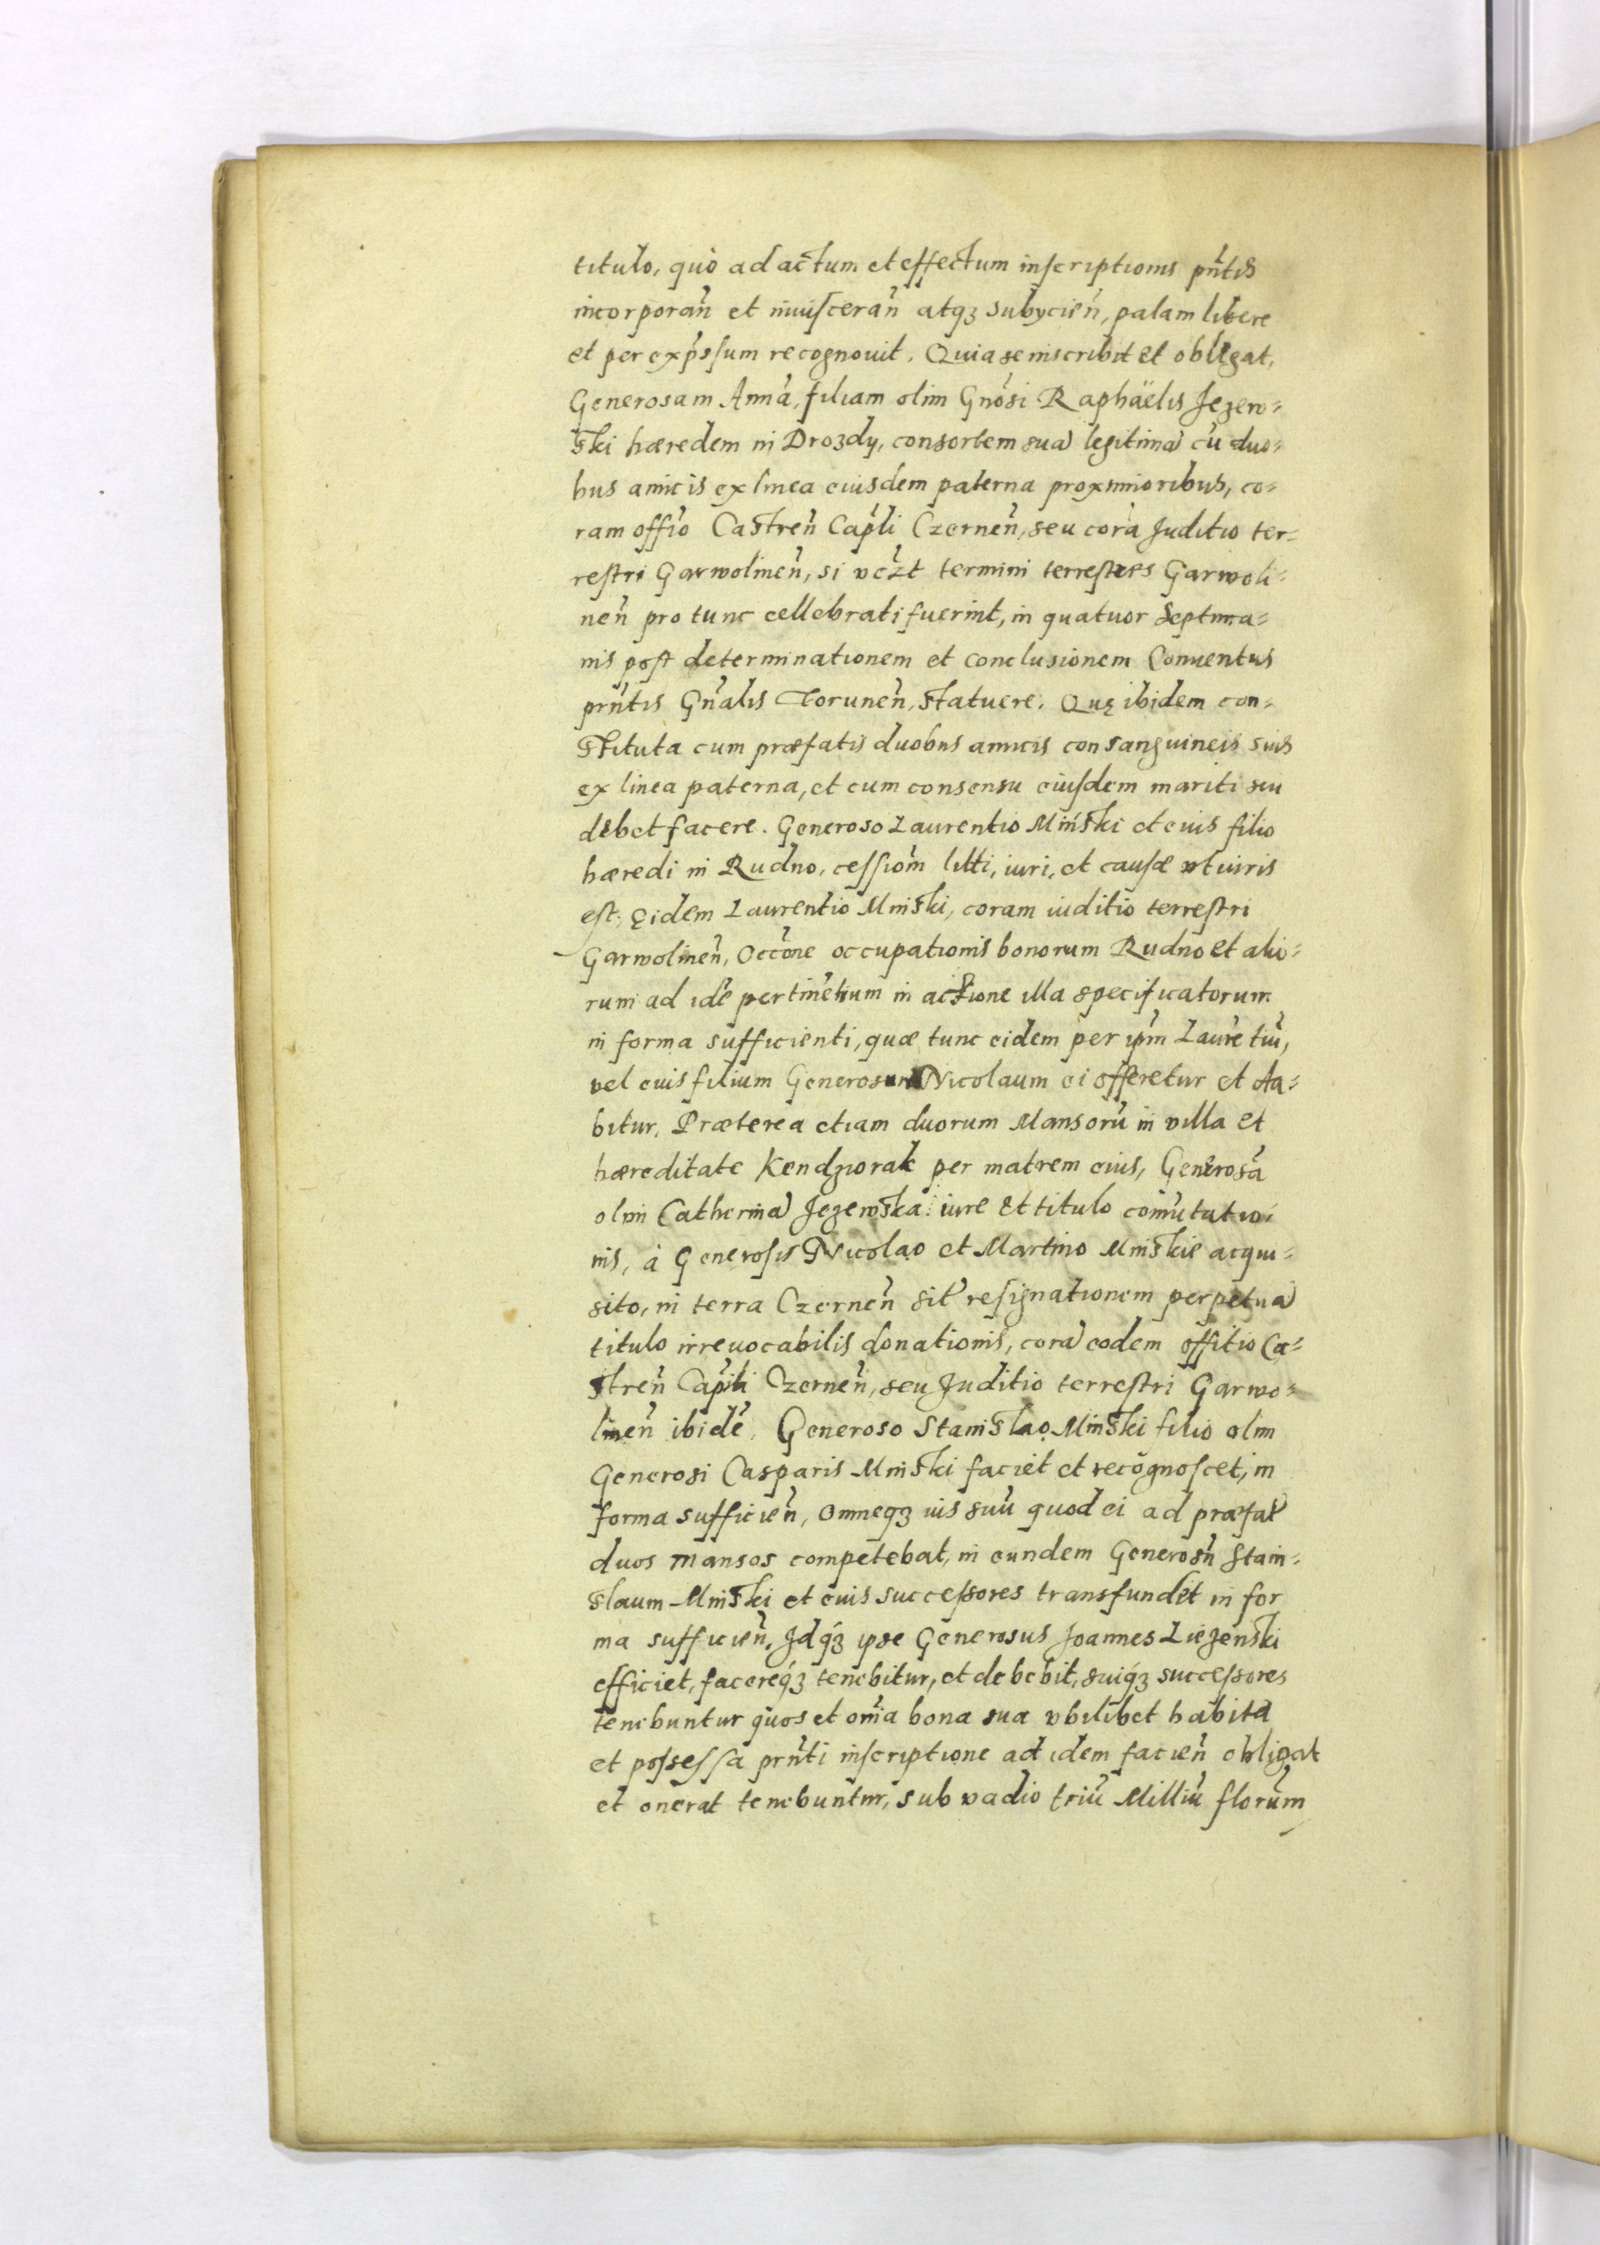 titulo, quò ad actum et effectum inscriptionis pn̄tis
incorporan̄ et inuisceran̄ atqꝫ subycien̄, palam libere
et per exp̄ssum recognouit. Quia se inscribit et obligat,
Generosam Annā, filiam olim Gnōsi Raphäelis Jezew=
ski hæredem in Drozdy, consortem suā legitimā cū duo=
bus amicis ex linea eiusdem paterna proximioribus, co=
ram offīo Castren̄ Cap̄li Czernen̄, seu corā Juditio ter=
restri Garwolinen̄, si vc̄zt termini terrestres Garwoli=
nen̄ pro tunc cellebrati fuerint, in quatuor Septima=
nis post determinationem et conclusionem Conuentus
prn̄tis Gn̄alis Torunen̄, statuere. Quę ibidem con=
stituta cum præfatis duobus amicis consanguineis suis
ex linea paterna, et cum consensu eiusdem mariti sui
debet facere. Generoso Laurentio Minski et eius filio
hæredi in Rudno, cessiom̄ litti, iuri, et causæ vt iuris
est, eidem Laurentio Minski, coram iuditio terrestri
Garwolinen̄, Occōne occupationis bonorum Rudno et alio=
rum ad idē pertinētium in actione illa specificatorum
in forma sufficienti, quæ tunc eidem per ipm̄ Laurētiū,
vel eius filium Generosum Nicolaum ei offeretur et da=
bitur. Præterea etiam duorum Mansorū in villa et
hæreditate Kendziorak per matrem eius, Generosā
olim Catherinā Jezewska iure et titulo com̄utatio=
nis, à Generosis Nicolao et Martino Minskie acqui=
sito, in terra Czernen̄ sit̄ resignationem perpetuā
titulo irreuocabilis donationis, corā eodem offitio Ca=
stren̄ Cap̄li Czernen̄, seu Juditio terrestri Garwo=
linen̄ ibidē. Generoso Stanislao Minski filio olim
Generosi Casparis Minski faciet et recognoscet, in
forma sufficien̄, omneqꝫ ius suū quod ei ad præfat̄
duos mansos competebat, in eundem Generosn̄ Stani=
slaum Minski et eius successores transfundet in for
ma sufficien̄. Idqꝫ ipse Generosus Joannes Liezenski
efficiet, facereqꝫ tenebitur, et debebit, suiqꝫ successores
tenebuntur quos et om̄ia bona sua vbilibet habita
et possessa prn̄ti inscriptione ad idem facien̄ obligat
et onerat tenebuntur, sub vadio triū Milliū florūm